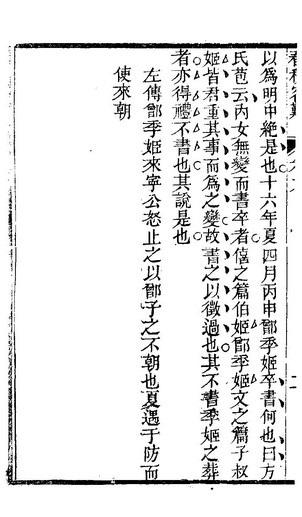 以爲明中絶是也十六年夏四月丙申鄫季姬卒書何也曰方
氏苞云内女無變而書卒者僖之篇伯姬鄫季姬文之篇子叔
姬皆君重其事而爲之變故書之以徵過也其不書季姬之葬
者亦得禮不書也其說是也
左傳鄫季姬來寧公怒止之以鄫子之不朝也夏遇于防而
使來朝